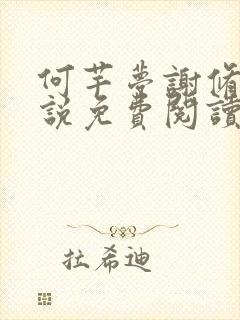 何芊夢謝脩
說免費閱讀
拉希迪